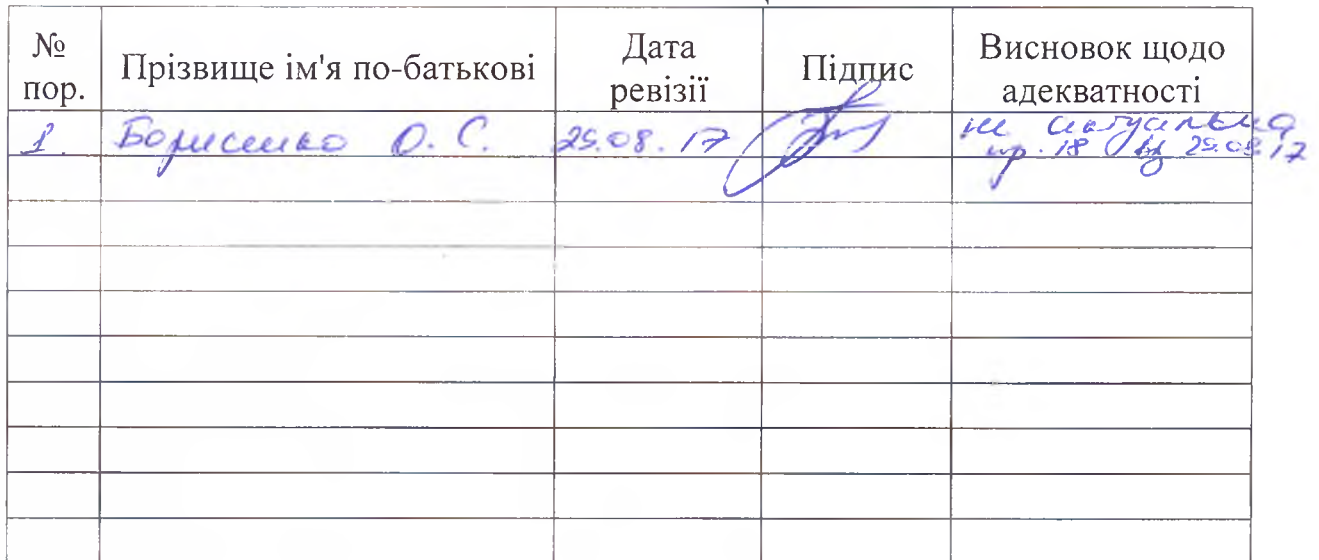 № пор. Прізвище ім'я по-батькові Дата ревізії Підпис Висновок щодо адекватності
1. Борисенко О. С. 29.08.17 не актуальна
пр. 18 від 29.08.17